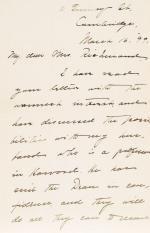 Cambridge,
March 16. '99.
My dear Mrs. Richmond
I have read
your letter with the
warmest interest and
has discussed the possi
bilities with my hus
band who is a professor
in Harvard he has
seen the Dean in con
fidence and they will
do all they can to